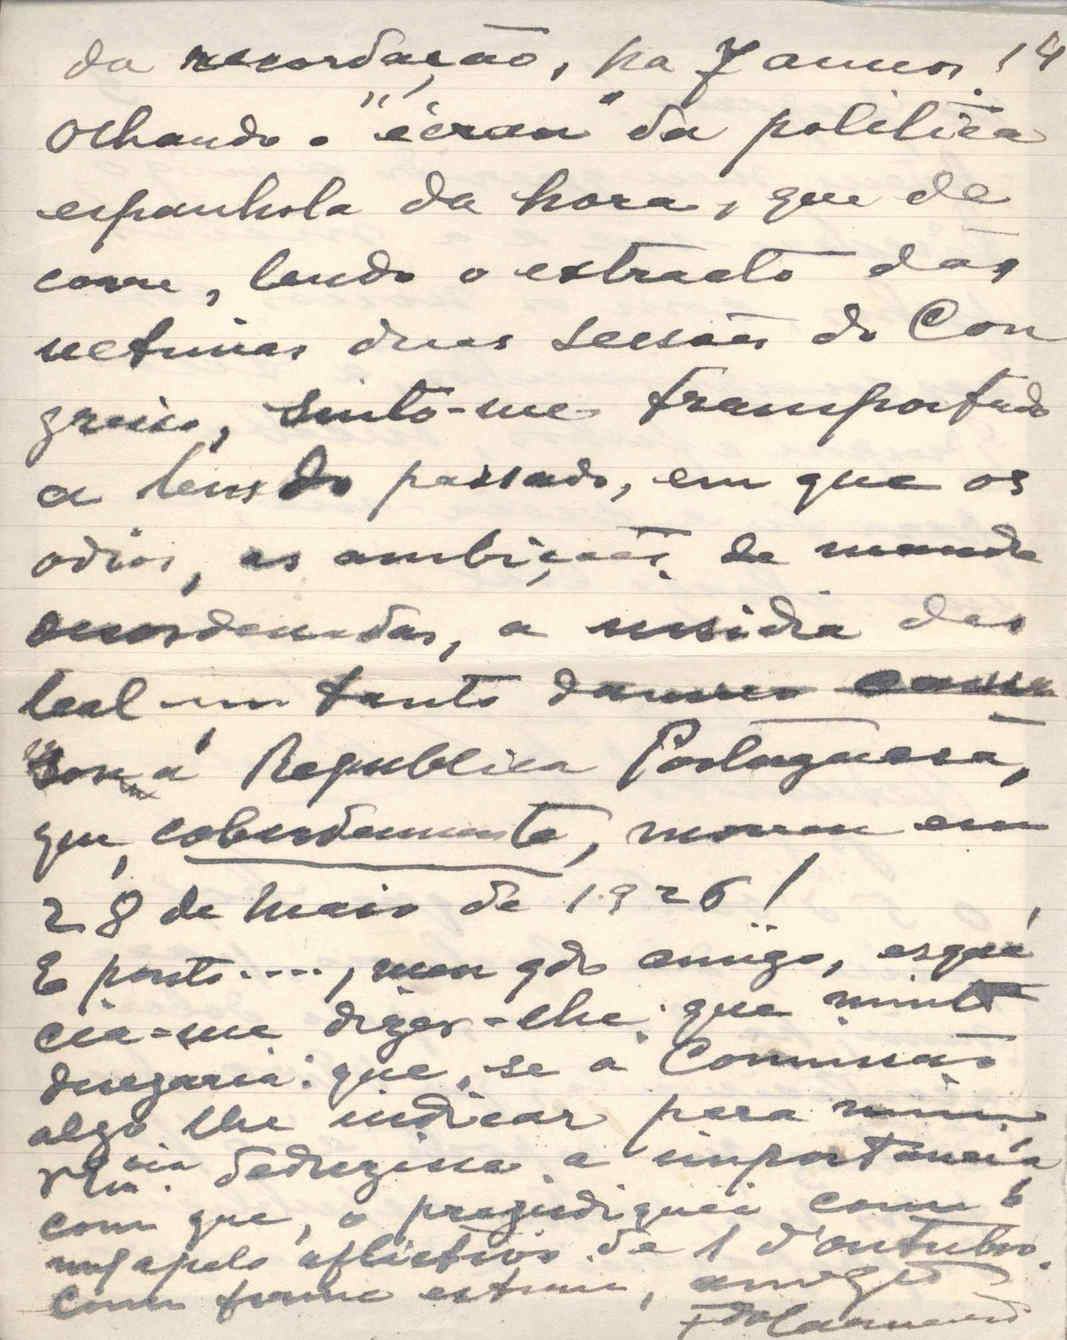 da recordação, ha 7 annos! 14
Olhando o "écran" da politica
espanhola da hora, que de
corre, lendo o extracto das
ultimas duas sessões do Con
gresso, sinto-me transportado
a tempos do passado, em que os
odios, as ambições de mando
desordenadas, a insidia des
leal um tanto
á Republica Portuguesa,
que, cobardemente, morreu em
28 de Maio de 1926!
E ponto...., meu qdo amigo, esque
cia-me dizer-lhe: que muito
desejaria: que, se a Comissão
algo lhe indicar para mim
V. Exia. deduzisse a importancia
com que, o prejudiquei com o
meu apelo aflictivo de 1 d'outubro.
Com firme estima, amigo